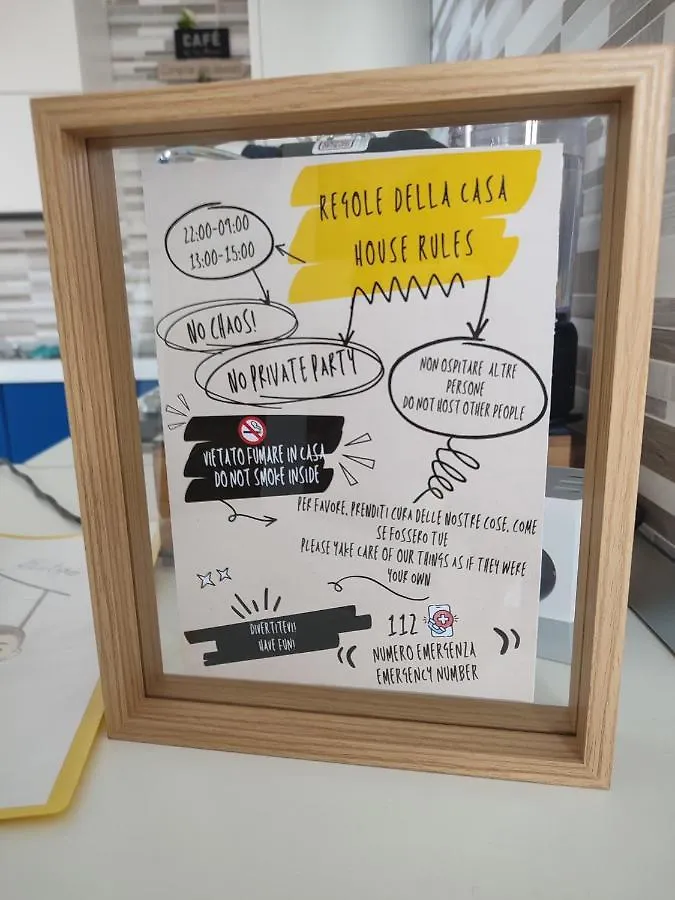 CAFÉ
REGOLE DELLA CASA
HOUSE RULES
22:00-09:00
13:00-15:00
NO CHAOS!
NO PRIVATE PARTY
NON OSPITARE ALTRE
PERSONE
DO NOT HOST OTHER PEOPLE
VIETATO FUMARE IN CASA
DO NOT SMOKE INSIDE
PER FAVORE, PRENDITI CURA DELLE NOSTRE COSE, COME
SE FOSSERO TUE
PLEASE TAKE CARE OF OUR THINGS AS IF THEY WERE
YOUR OWN
DIVERTITEVI!
HAVE FUN!
112
NUMERO EMERGENZA
EMERGENCY NUMBER